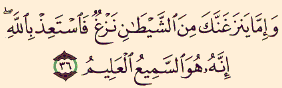 وَإِمَّا يَنزَغَنَّكَ مِنَ الشَّيْطَٰنِ نَزْغٌ فَاسْتَعِذْ بِاللَّهِ ۖ
إِنَّهُۥ هُوَ السَّمِيعُ الْعَلِيمُ ٣٦